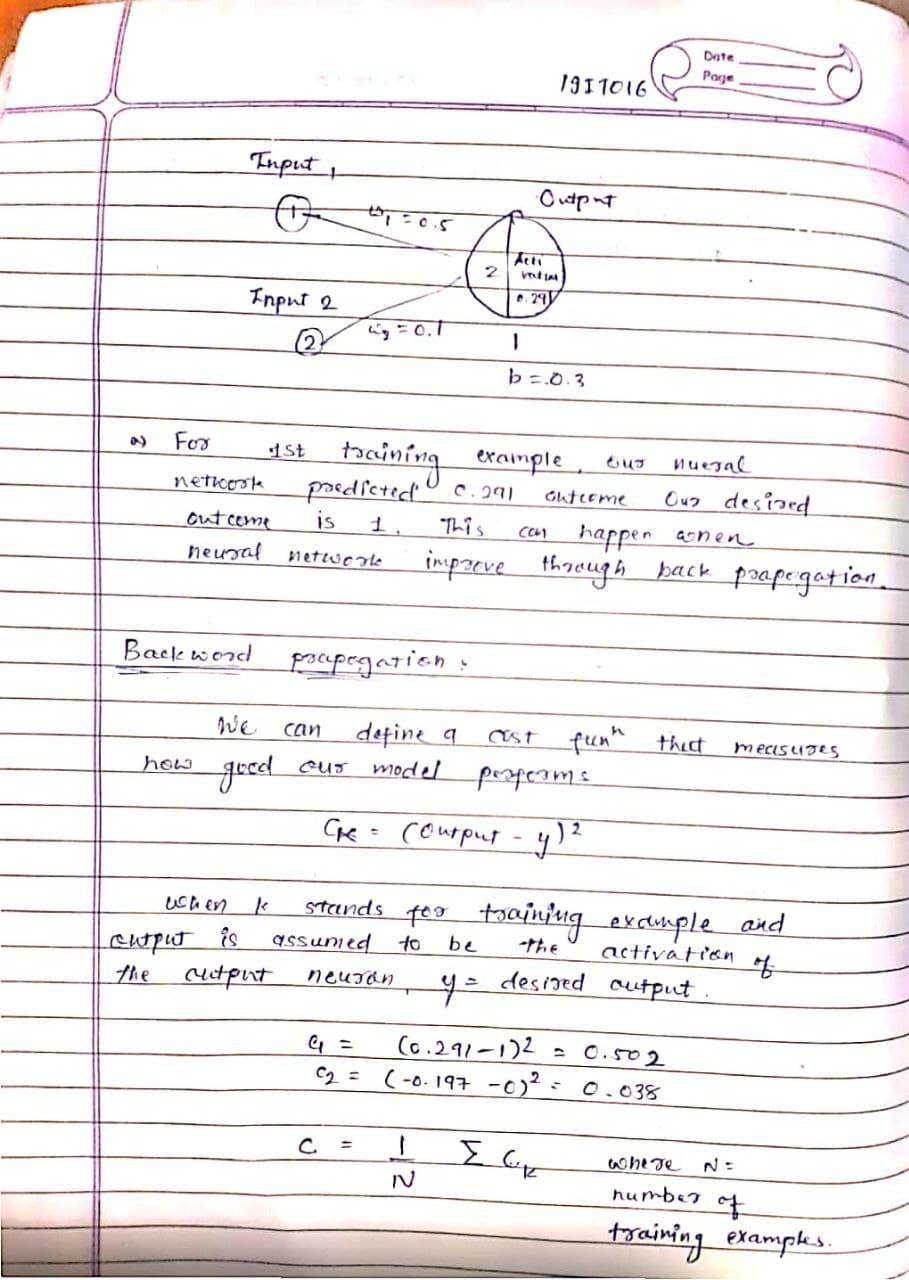 Date
Page
19IT016
Input 1
Output
1
w1 = 0.5
z
Acti
vation
0.291
Input 2
2
w2 = 0.1
1
b = 0.3
a) For 1st training example, our nueral
network predicted 0.291 outcome Our desired
outcome is 1. This can happen when
neural network improve through back propogation.
Backword propogation:
We can define a cost funn that measures
how good our model performs
CK = (output - y)2
when k stands for training example and
output is assumed to be the activation of
the output neuron, y = desired output.
C1 = (0.291-1)2 = 0.502
C2 = (-0.197 -0)2 = 0.038
C = 1/N Σ Ck where N =
number of
training examples.